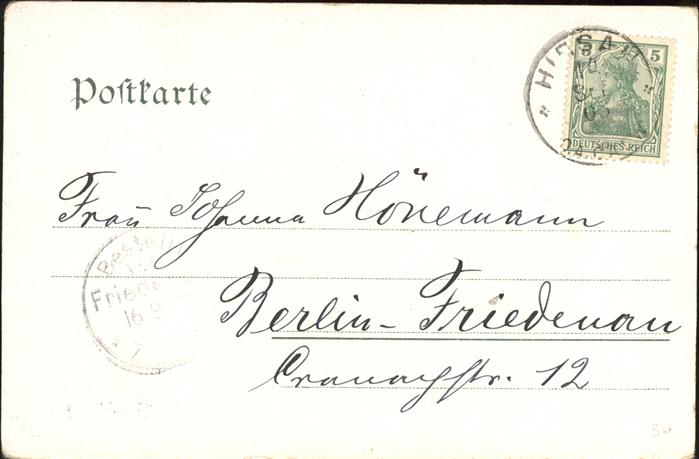 Postkarte
HIRSAU
5 5
DEUTSCHES REICH
Frau Johanna Hönemann
Bestellt
Friede
16 9
7
Berlin-Friedenau
Cranachstr. 12
BW